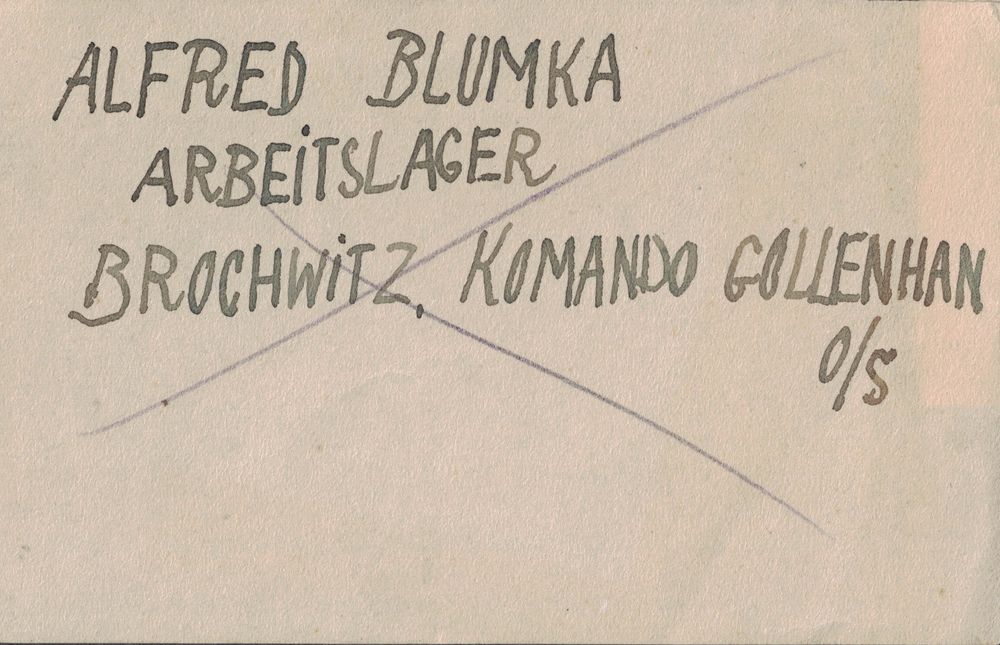 ALFRED BLUMKA
ARBEiTSLAGER
BROCHWiTZ, KOMANDO GOLLENHAN
O/S